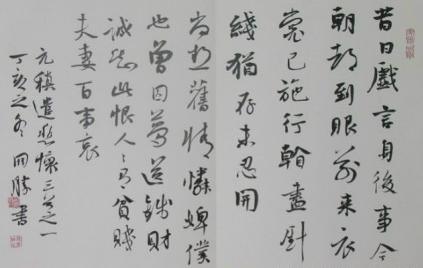 昔日戲言身後事今
朝都到眼前来衣
裳已施行看盡針
綫猶存未忍開
尚想舊情憐婢僕
也曾因夢送錢財
誠知此恨人々有貧賤
夫妻百事哀
元稹遣悲懷三首之一
丁亥之冬 書